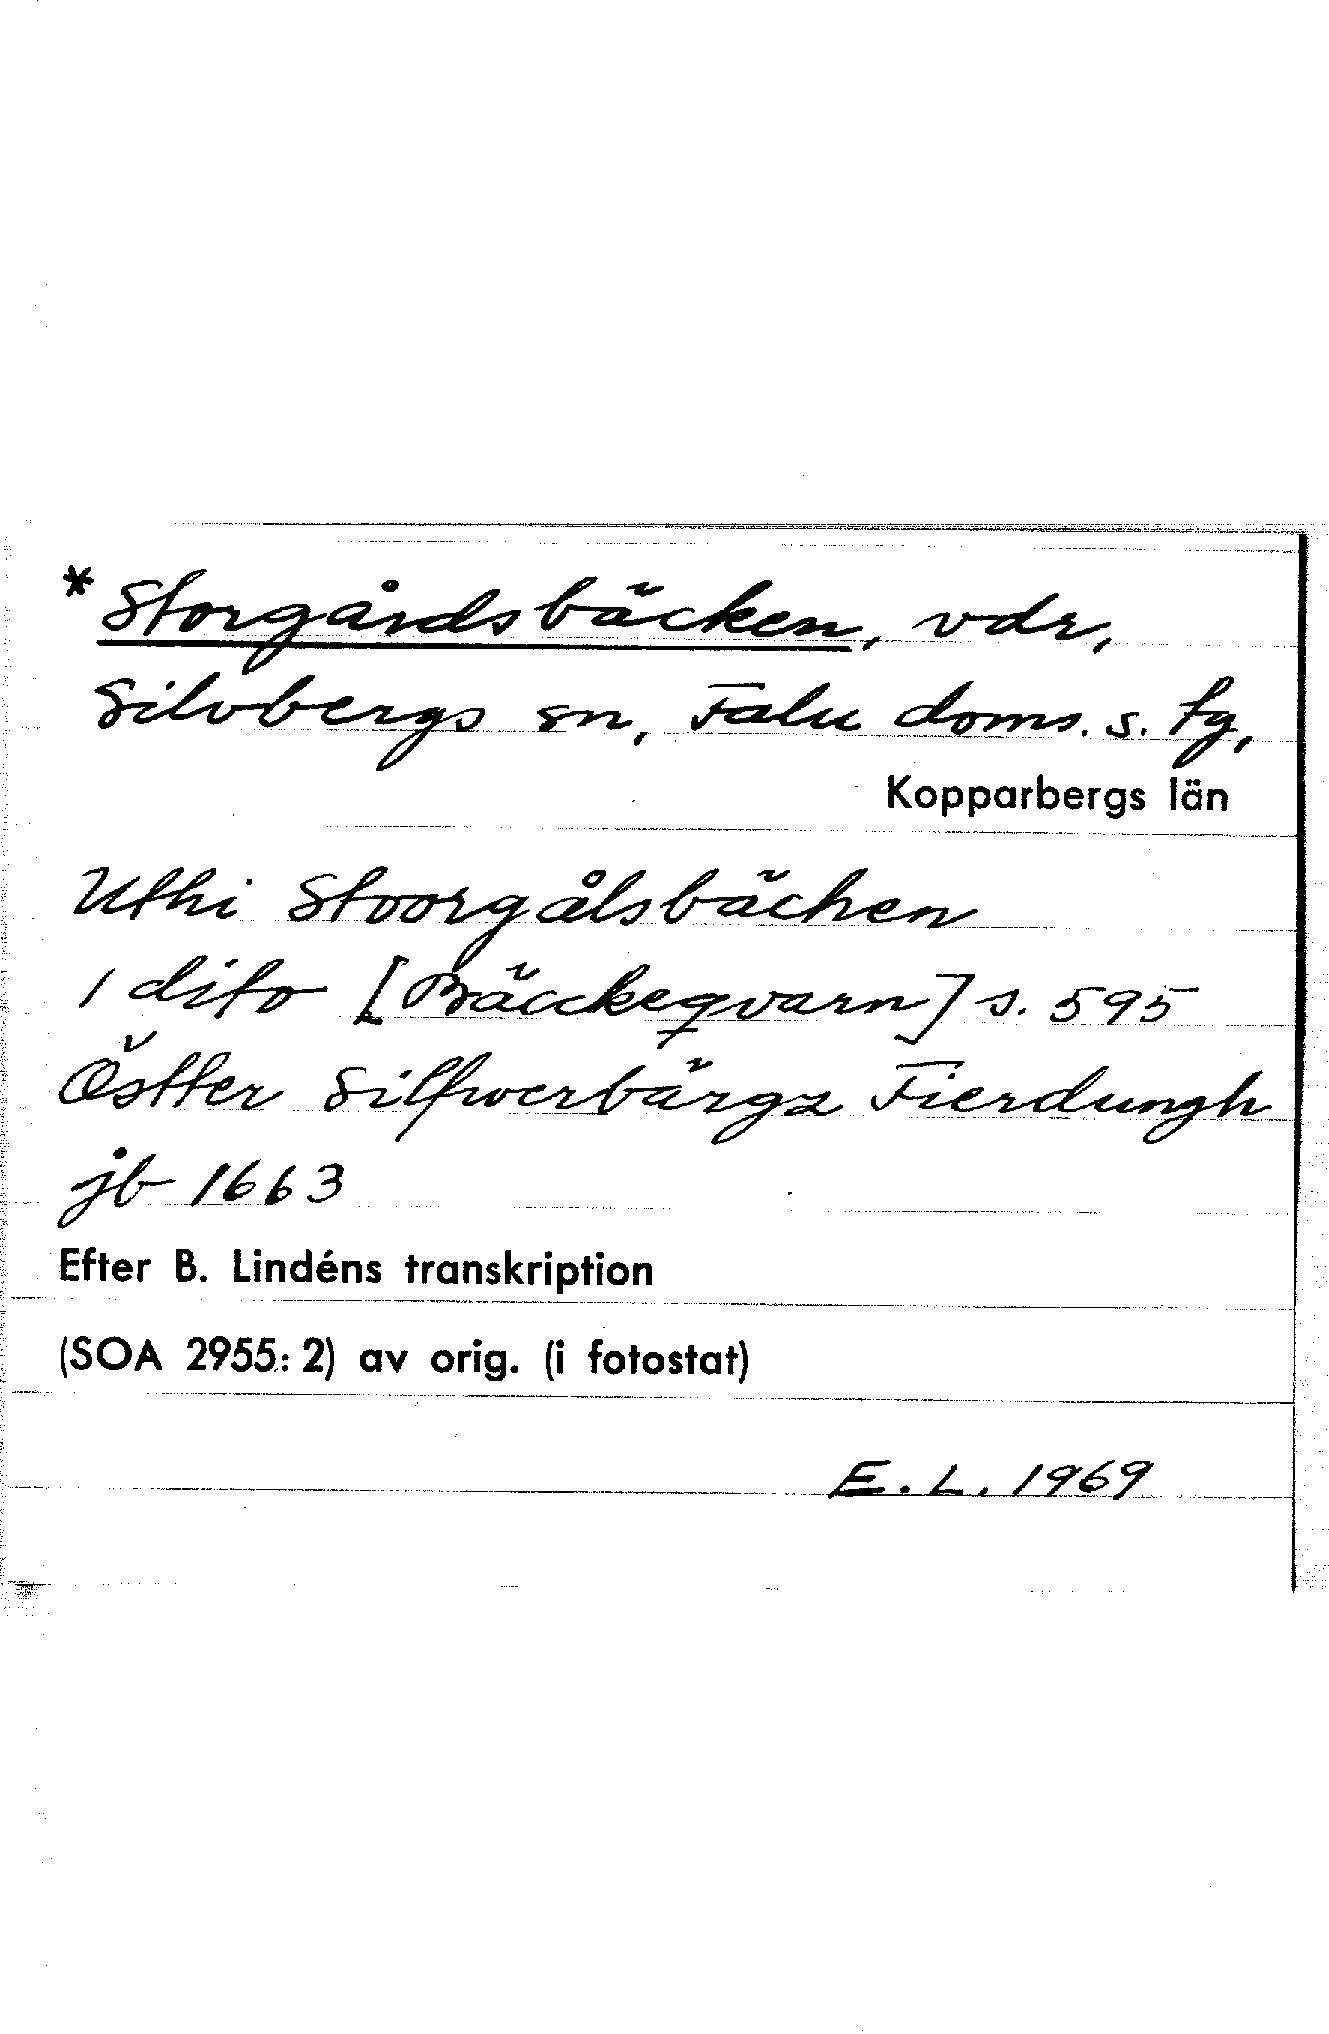 * Storgårdsbäcken, vdr,
Silvbergs sn, Falu doms. s. tg,
Kopparbergs län
Uthi Stoorgålsbächen
1 dito [Bäcckeqvarn] s. 595
Östter Silfwerbärgz Fierdungh
jb 1663
Efter B. Lindéns transkription
(SOA 2955:2) av orig. (i fotostat)
E. L. 1969